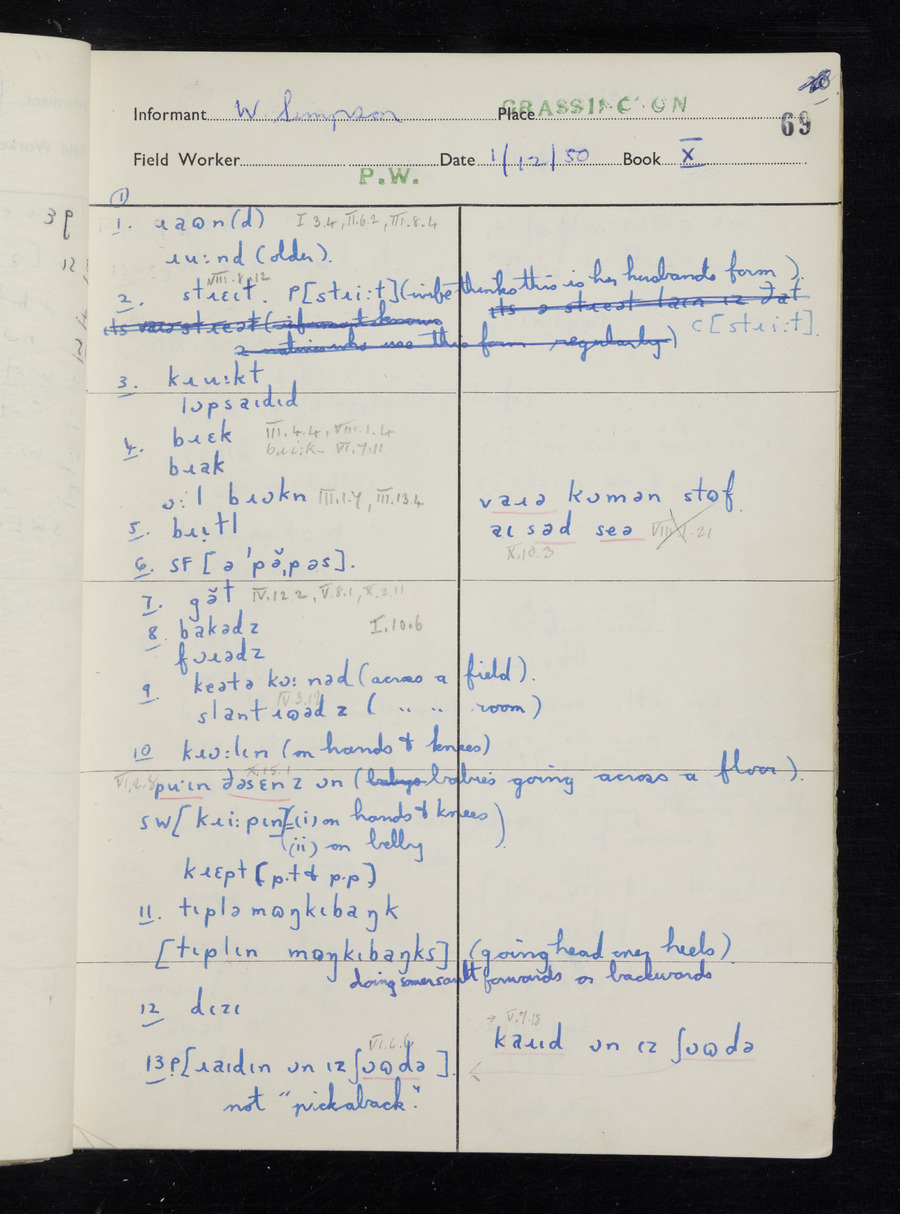 Informant W. Simpson Place GRASSINGTON
69
Field Worker P.W. Date 1/12/50 Book X
①
1. ɹaʊn(d) I.3.4, II.6.2, III.8.4
ɹu:nd (older).
VIII.8.12
2. stɹɛɪt. P[stɹi:t] (wife thinks this is her husband's form).
C[stɹi:t].
3. kɹu:kt
lɒpsaɪdɪd
4. bɹɛk III.4.4, VIII.1.4
VI.7.11
bɹak
ɒ:l bɹɒkn III.1.7, III.13.4
vaɹə kɒmən stʊf.
5. bɹɪtl
aɪ səd seə
X.10.3
6. SF [ə'pă,pəs].
7. găt IV.12.2, V.8.1, X.2.11
8. bakədz I.10.6
fɒɹədz
9 keətə kɒ:nəd (across a field).
slantɹʊədz ( " " room)
10 kɹɒ:lɪn (on hands & knees)
pu:ɪn ðəsɛnz ɒn (babies going across a floor).
SW [kɹi:pɪn] = (i) on hands & knees)
(ii) on belly
kɹɛpt [p.t & p.p]
11. tɪplə mʊŋkɪbaŋk
[tɪplɪn mʊŋkɪbaŋks] (going head over heels)
doing somersault forwards or backwards
12 dɪzɪ
→ V.9.18
kaɹɪd ɒn ɪz ʃʊʊdə
VI.6.6
13 P[ɹaɪdɪn ɒn ɪz ʃʊʊdə].
not "pickaback".